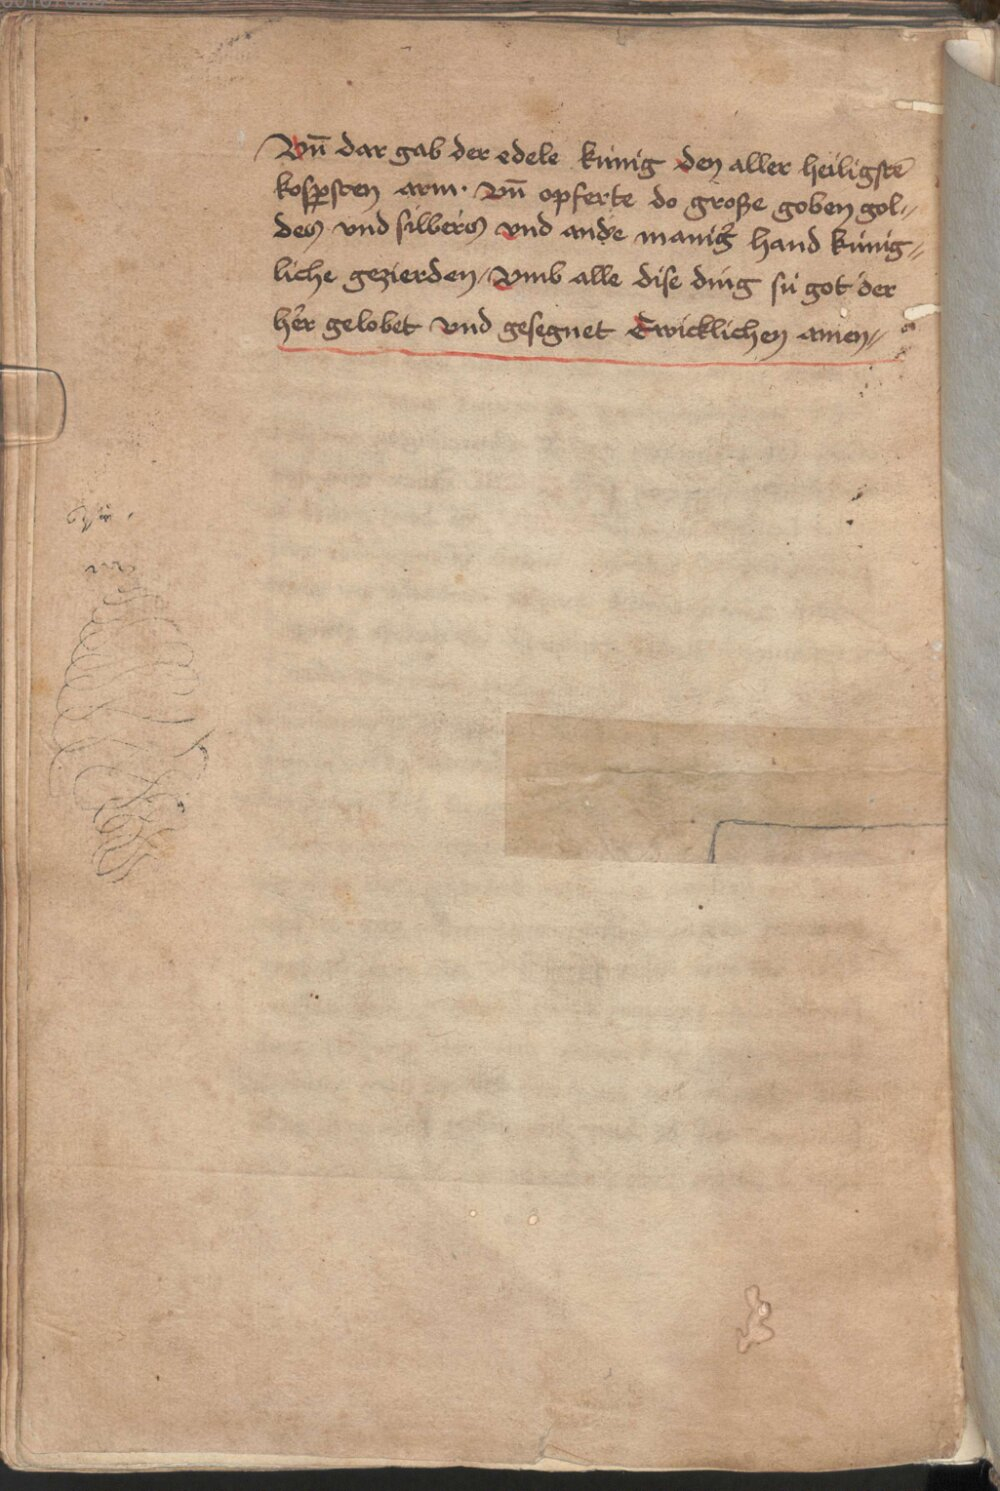 Vn̄ dar gab der edele kúnig den aller heiligstē
kosp̲sten arm · vn̄ opferte do große goben gol⸗
des vnd silbers vnd and̾e manig̾ hand kúnig⸗
liche gezierden / Vmb alle dise ding sú got der
her gelobet vnd gesegnet Ewicklichen amen⸗